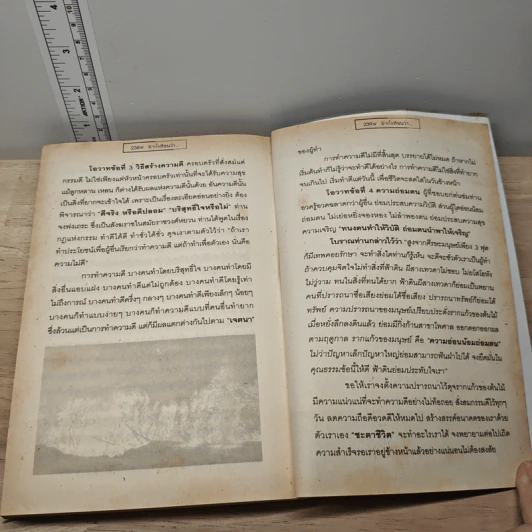 โอวาทข้อที่ 3 วิธีสร้างความดี ครอบครัวที่สั่งสมแต่
กรรมดี ไม่ใช่เพียงแต่หัวหน้าครอบครัวเท่านั้นที่จะได้รับความสุข
แม้ลูกหลาน เหลน ก็ต่างได้รับผลแห่งความดีนั้นด้วย อันความดีนั้น
เป็นสิ่งที่ยากจะเข้าใจได้ เพราะเป็นเรื่องละเอียดอ่อนอย่างยิ่ง ต้อง
พิจารณาว่า "ดีจริง หรือดีปลอม" "บริสุทธิ์ใจหรือไม่" ท่าน
ท่านได้พูดในเรื่อง
กฎแห่งกรรม ทำดีได้ดี ทำชั่วได้ชั่ว
ทำประโยชน์เพื่อผู้อื่นเรียกว่าทำความดี แต่ถ้าทำเพื่อตัวเอง นั่นคือ
ความไม่ดี"
การทำความดี บางคนทำโดยบริสุทธิ์ใจ บางคนทำโดยมี
สิ่งอื่นแอบแฝง บางคนทำดีแต่ไม่ถูกต้อง บางคนทำดีโดยรู้เท่า
ไม่ถึงการณ์ บางคนทำดีครึ่งๆ กลางๆ บางคนทำดีเพียงเล็กๆ น้อยๆ
บางคนก็ทำแบบง่ายๆ บางคนก็ทำความดีแบบที่คนอื่นทำยาก
ซึ่งล้วนแต่เป็นการทำความดี แต่ก็มีผลแตกต่างกันไปตาม "เจตนา"
ของผู้ทำ
การทำความดีไม่มีที่สิ้นสุด บรรยายได้ไม่หมด ถ้าหากไม่
เริ่มต้นทำก็ไม่รู้ว่าจะทำดีได้อย่างไร การทำความดีไม่ใช่สิ่งที่ทำยาก
จนเกินไป เริ่มทำดีแต่วันนี้ เพื่อชีวิตจะสดใสในวันข้างหน้า
โอวาทข้อที่ 4 ความถ่อมตน ผู้ที่ชอบยกตนข่มท่าน
อวดรู้อวดฉลาดกว่าผู้อื่น ย่อมประสบความวิบัติ ส่วนผู้ใดอ่อนน้อม
ถ่อมตน ไม่เย่อหยิ่งจองหอง ไม่ลำพองตน ย่อมประสบความสุข
ความเจริญ "ทะนงตนทำให้วิบัติ ถ่อมตนนำพาให้เจริญ"
โบราณท่านกล่าวไว้ว่า "สูงจากศีรษะมนุษย์เพียง 3 ฟุต
ก็มีเทพคอยรักษา จะทำสิ่งใดท่านก็รู้เห็น จะดีจะชั่วตัวเราเป็นผู้ทำ
ถ้าควบคุมจิตใจไม่ทำสิ่งที่ฟ้าดิน มีสางเทวดาไม่ชอบ ไม่อโลโอหัง
คนที่ปรารถนาชื่อเสียงย่อมได้ชื่อเสียง ปรารถนาทรัพย์ก็ย่อมได้
ทรัพย์ ความปรารถนาของมนุษย์เปรียบประดั่งรากแก้วของต้นไม้
เมื่อหยั่งลึกลงดินแล้ว ย่อมมีกิ่งก้านสาขาไพศาล ออกดอกออกผล
ตามฤดูกาล รากแก้วของมนุษย์ คือ "ความอ่อนน้อมถ่อมตน"
ไม่ว่าปัญหาเล็กปัญหาใหญ่ย่อมสามารถฟันฝ่าไปได้ จงยึดมั่นใน
คุณธรรมข้อนี้ให้ดี ฟ้าดินย่อมประทับใจเรา"
ขอให้เราจงตั้งความปรารถนาไว้ดุจรากแก้วของต้นไม้
มีความแน่วแน่ที่จะทำความดีอย่างไม่ท้อถอย สั่งสมกรรมดีไว้ทุกๆ
วัน ลดความถือดีอวดดีให้หมดไป สร้างสรรค์อนาคตของเราด้วย
ตัวเราเอง "ชะตาชีวิต" จะทำอะไรเราได้ จงพยายามต่อไปเถิด
ความสำเร็จรอเราอยู่ข้างหน้าแล้วอย่างแน่นอนไม่ต้องสงสัย